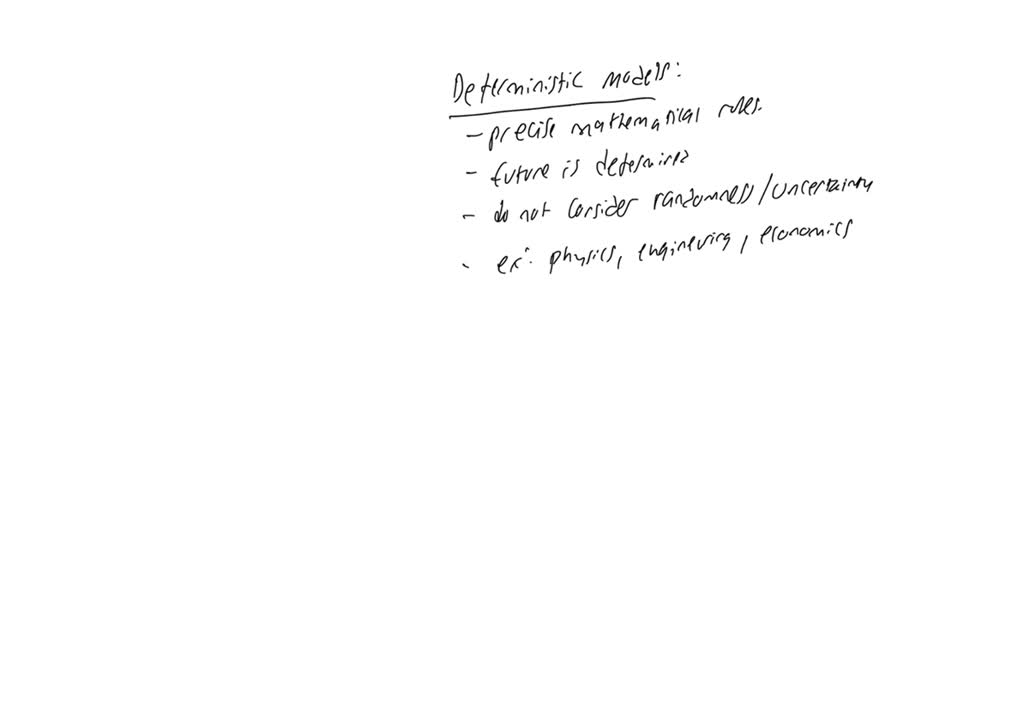 Deterministic models:
- precise mathematical rules.
- future is determined
- do not consider randomness/uncertainty
- ex: physics, engineering, economics